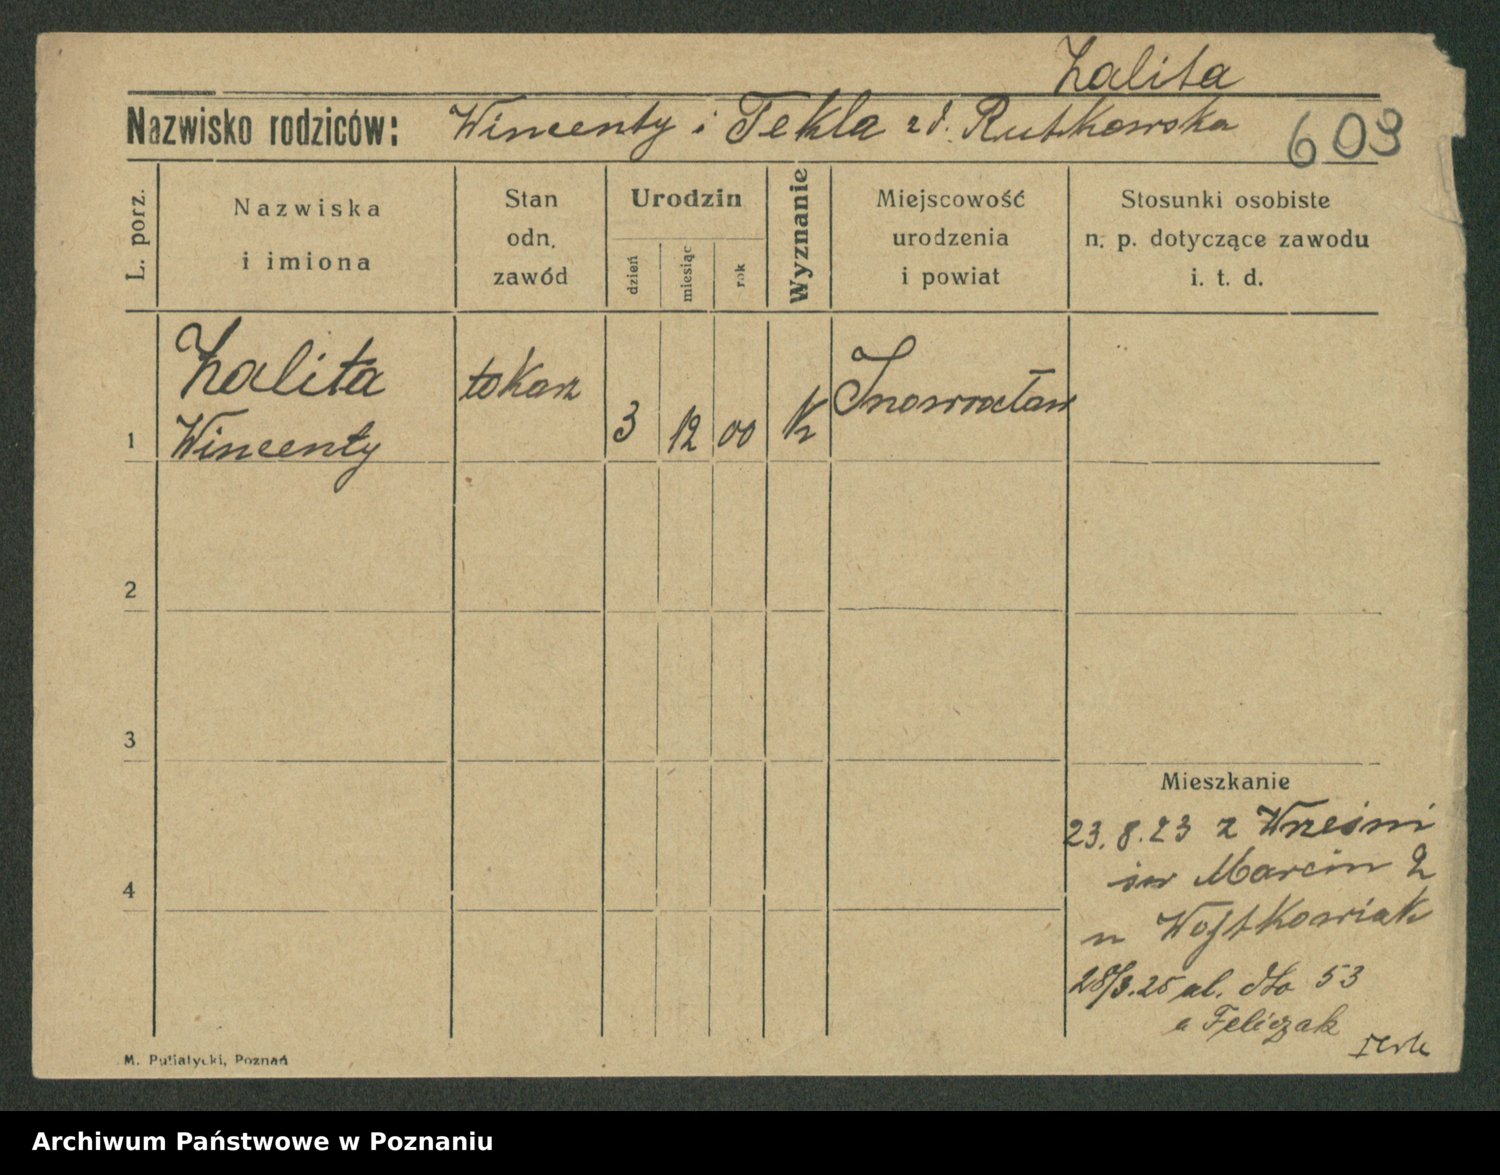 Zalita
Nazwisko rodziców: Wincenty i Tekla zd. Rutkowska
609
L. porz.
Nazwiska
i imiona
Stan
odn.
zawód
Urodzin
dzień
miesiąc
rok
Wyznanie
Miejscowość
urodzenia
i powiat
Stosunki osobiste
n. p. dotyczące zawodu
i. t. d.
Zalita
Wincenty
tokarz
1
3 12 00 K
Inowrocław
2
3
4
Mieszkanie
23.8.23 z Wrześni
św Marcin
u Wojtkowiak
28/3.25 ul. 53
u Feliczak
M. Putiatycki, Poznań
Archiwum Państwowe w Poznaniu